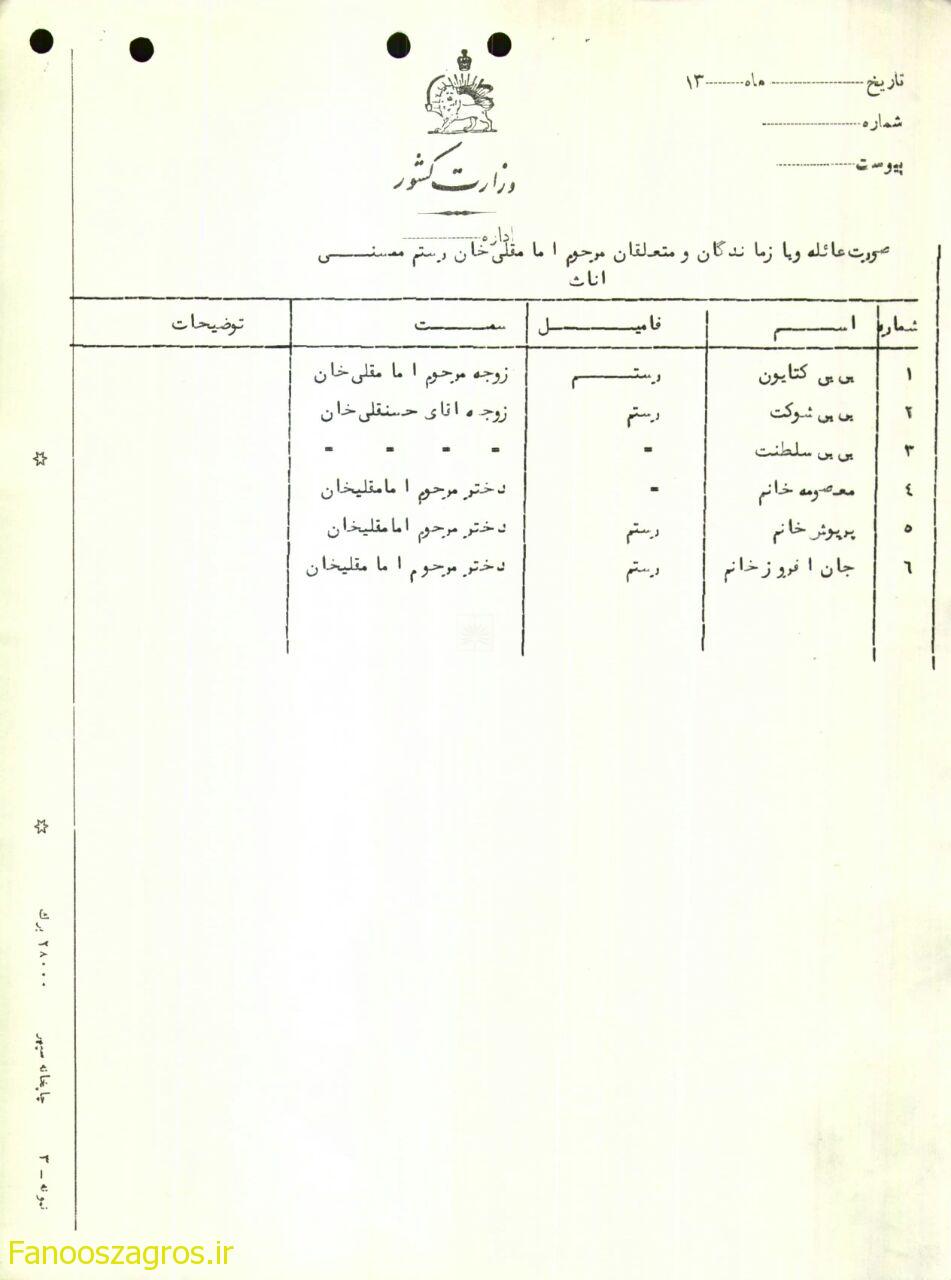 تاریخ ماه ۱۳
شماره
پیوست
وزارت کشور
اداره
صورت عائله وبا زما ندگان و متعلقان مرحوم ا ما مقلی خان رستم ممسنـــی
اناث
شماره اســـم فامیـــل سمـــت توضیحات
۱ بی بی کتایون رستـــم زوجه مرحوم ا ما مقلی خان
۲ بی بی شوکت رستم زوجه اقای حسنقلی خان
۳ بی بی سلطنت - - - - -
٤ معصومه خانم - دختر مرحوم ا مامقلیخان
٥ پریوش خانم رستم دختر مرحوم امامقلیخان
٦ جان ا فروز خانم رستم دختر مرحوم ا ما مقلیخان
۲۸۰۰۰ برك
چاپخانه سپهر
نمونه - ۳
Fanooszagros.ir